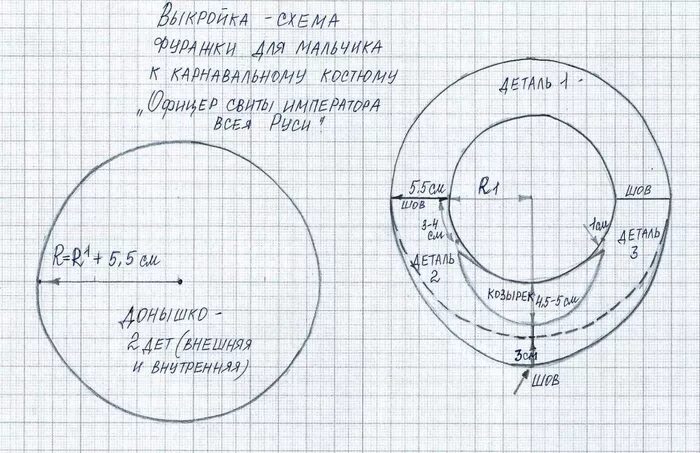 Выкройка - схема
фуражки для мальчика
к карнавальному костюму
„Офицер свиты императора
всея Руси"
R=R1 + 5,5 см
Донышко -
2 дет (внешняя
и внутренняя)
Деталь 1
5.5см
R1
шов
шов
3-4
см
1см
Деталь
2
Деталь
3
козырек
4,5-5см
3см
шов